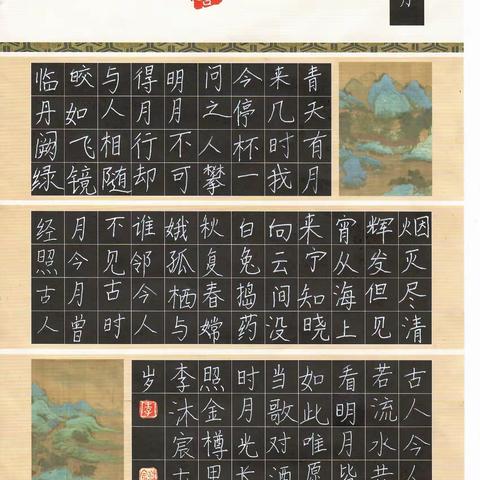 青天有月
来几时我
今停杯一
问之人攀
明月不可
得月行却
与人相随
皎如飞镜
临丹阙绿
烟灭尽清
辉发但见
宵从海上
来宁知晓
向云间没
白兔捣药
秋复春嫦
娥孤栖与
谁邻今人
不见古时
月今月曾
经照古人
古人今人
若流水共
看明月皆
如此唯愿
当歌对酒
时月光长
照金樽里
李沐宸
岁